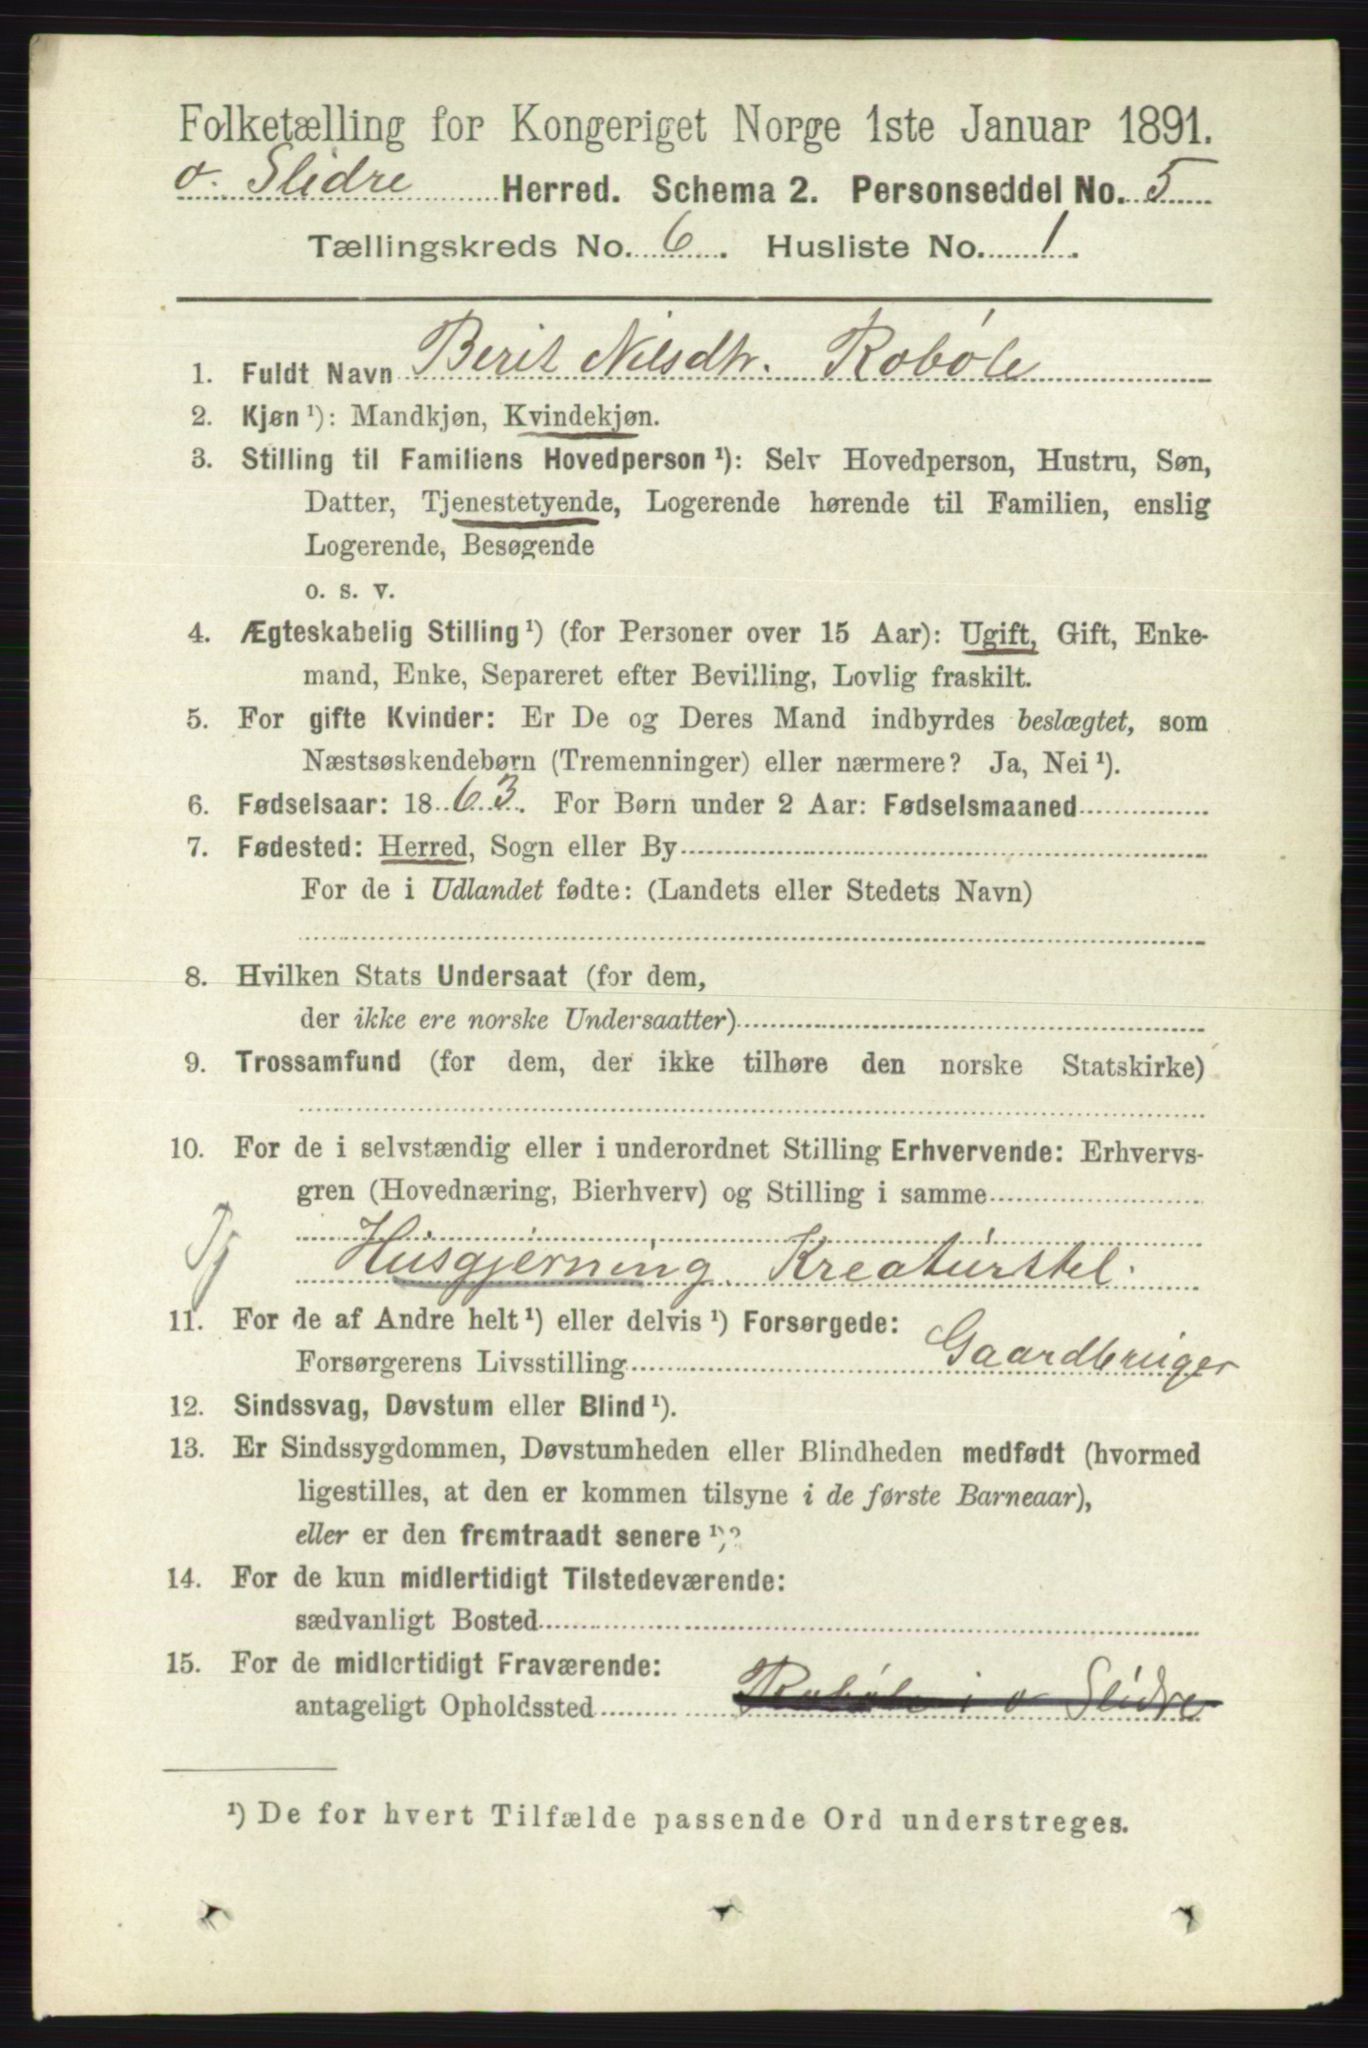 Folketælling for Kongeriget Norge 1ste Januar 1891.
ø. Slidre Herred. Schema 2. Personseddel No. 5
Tællingskreds No. 6. Husliste No. 1.
1. Fuldt Navn Berit Nilsdtr. Robøle
2. Kjøn ¹): Mandkjøn, Kvindekjøn.
3. Stilling til Familiens Hovedperson ¹): Selv Hovedperson, Hustru, Søn,
Datter, Tjenestetyende, Logerende hørende til Familien, enslig
Logerende, Besøgende
o. s. v.
4. Ægteskabelig Stilling ¹) (for Personer over 15 Aar): Ugift, Gift, Enke-
mand, Enke, Separeret efter Bevilling, Lovlig fraskilt.
5. For gifte Kvinder: Er De og Deres Mand indbyrdes beslægtet, som
Næstsøskendebørn (Tremenninger) eller nærmere? Ja, Nei ¹).
6. Fødselsaar: 1863. For Børn under 2 Aar: Fødselsmaaned
7. Fødested: Herred, Sogn eller By
For de i Udlandet fødte: (Landets eller Stedets Navn)
8. Hvilken Stats Undersaat (for dem,
der ikke ere norske Undersaatter)
9. Trossamfund (for dem, der ikke tilhøre den norske Statskirke)
10. For de i selvstændig eller i underordnet Stilling Erhvervende: Erhvervs-
gren (Hovednæring, Bierhverv) og Stilling i samme
Tj Husgjerning Kreaturstel.
11. For de af Andre helt ¹) eller delvis ¹) Forsørgede:
Forsørgerens Livsstilling Gaardbruger
12. Sindssvag, Døvstum eller Blind ¹).
13. Er Sindssygdommen, Døvstumheden eller Blindheden medfødt (hvormed
ligestilles, at den er kommen tilsyne i de første Barneaar),
eller er den fremtraadt senere ¹)?
14. For de kun midlertidigt Tilstedeværende:
sædvanligt Bosted
15. For de midlertidigt Fraværende:
antageligt Opholdssted Robøle i ø Slidre
¹) De for hvert Tilfælde passende Ord understreges.